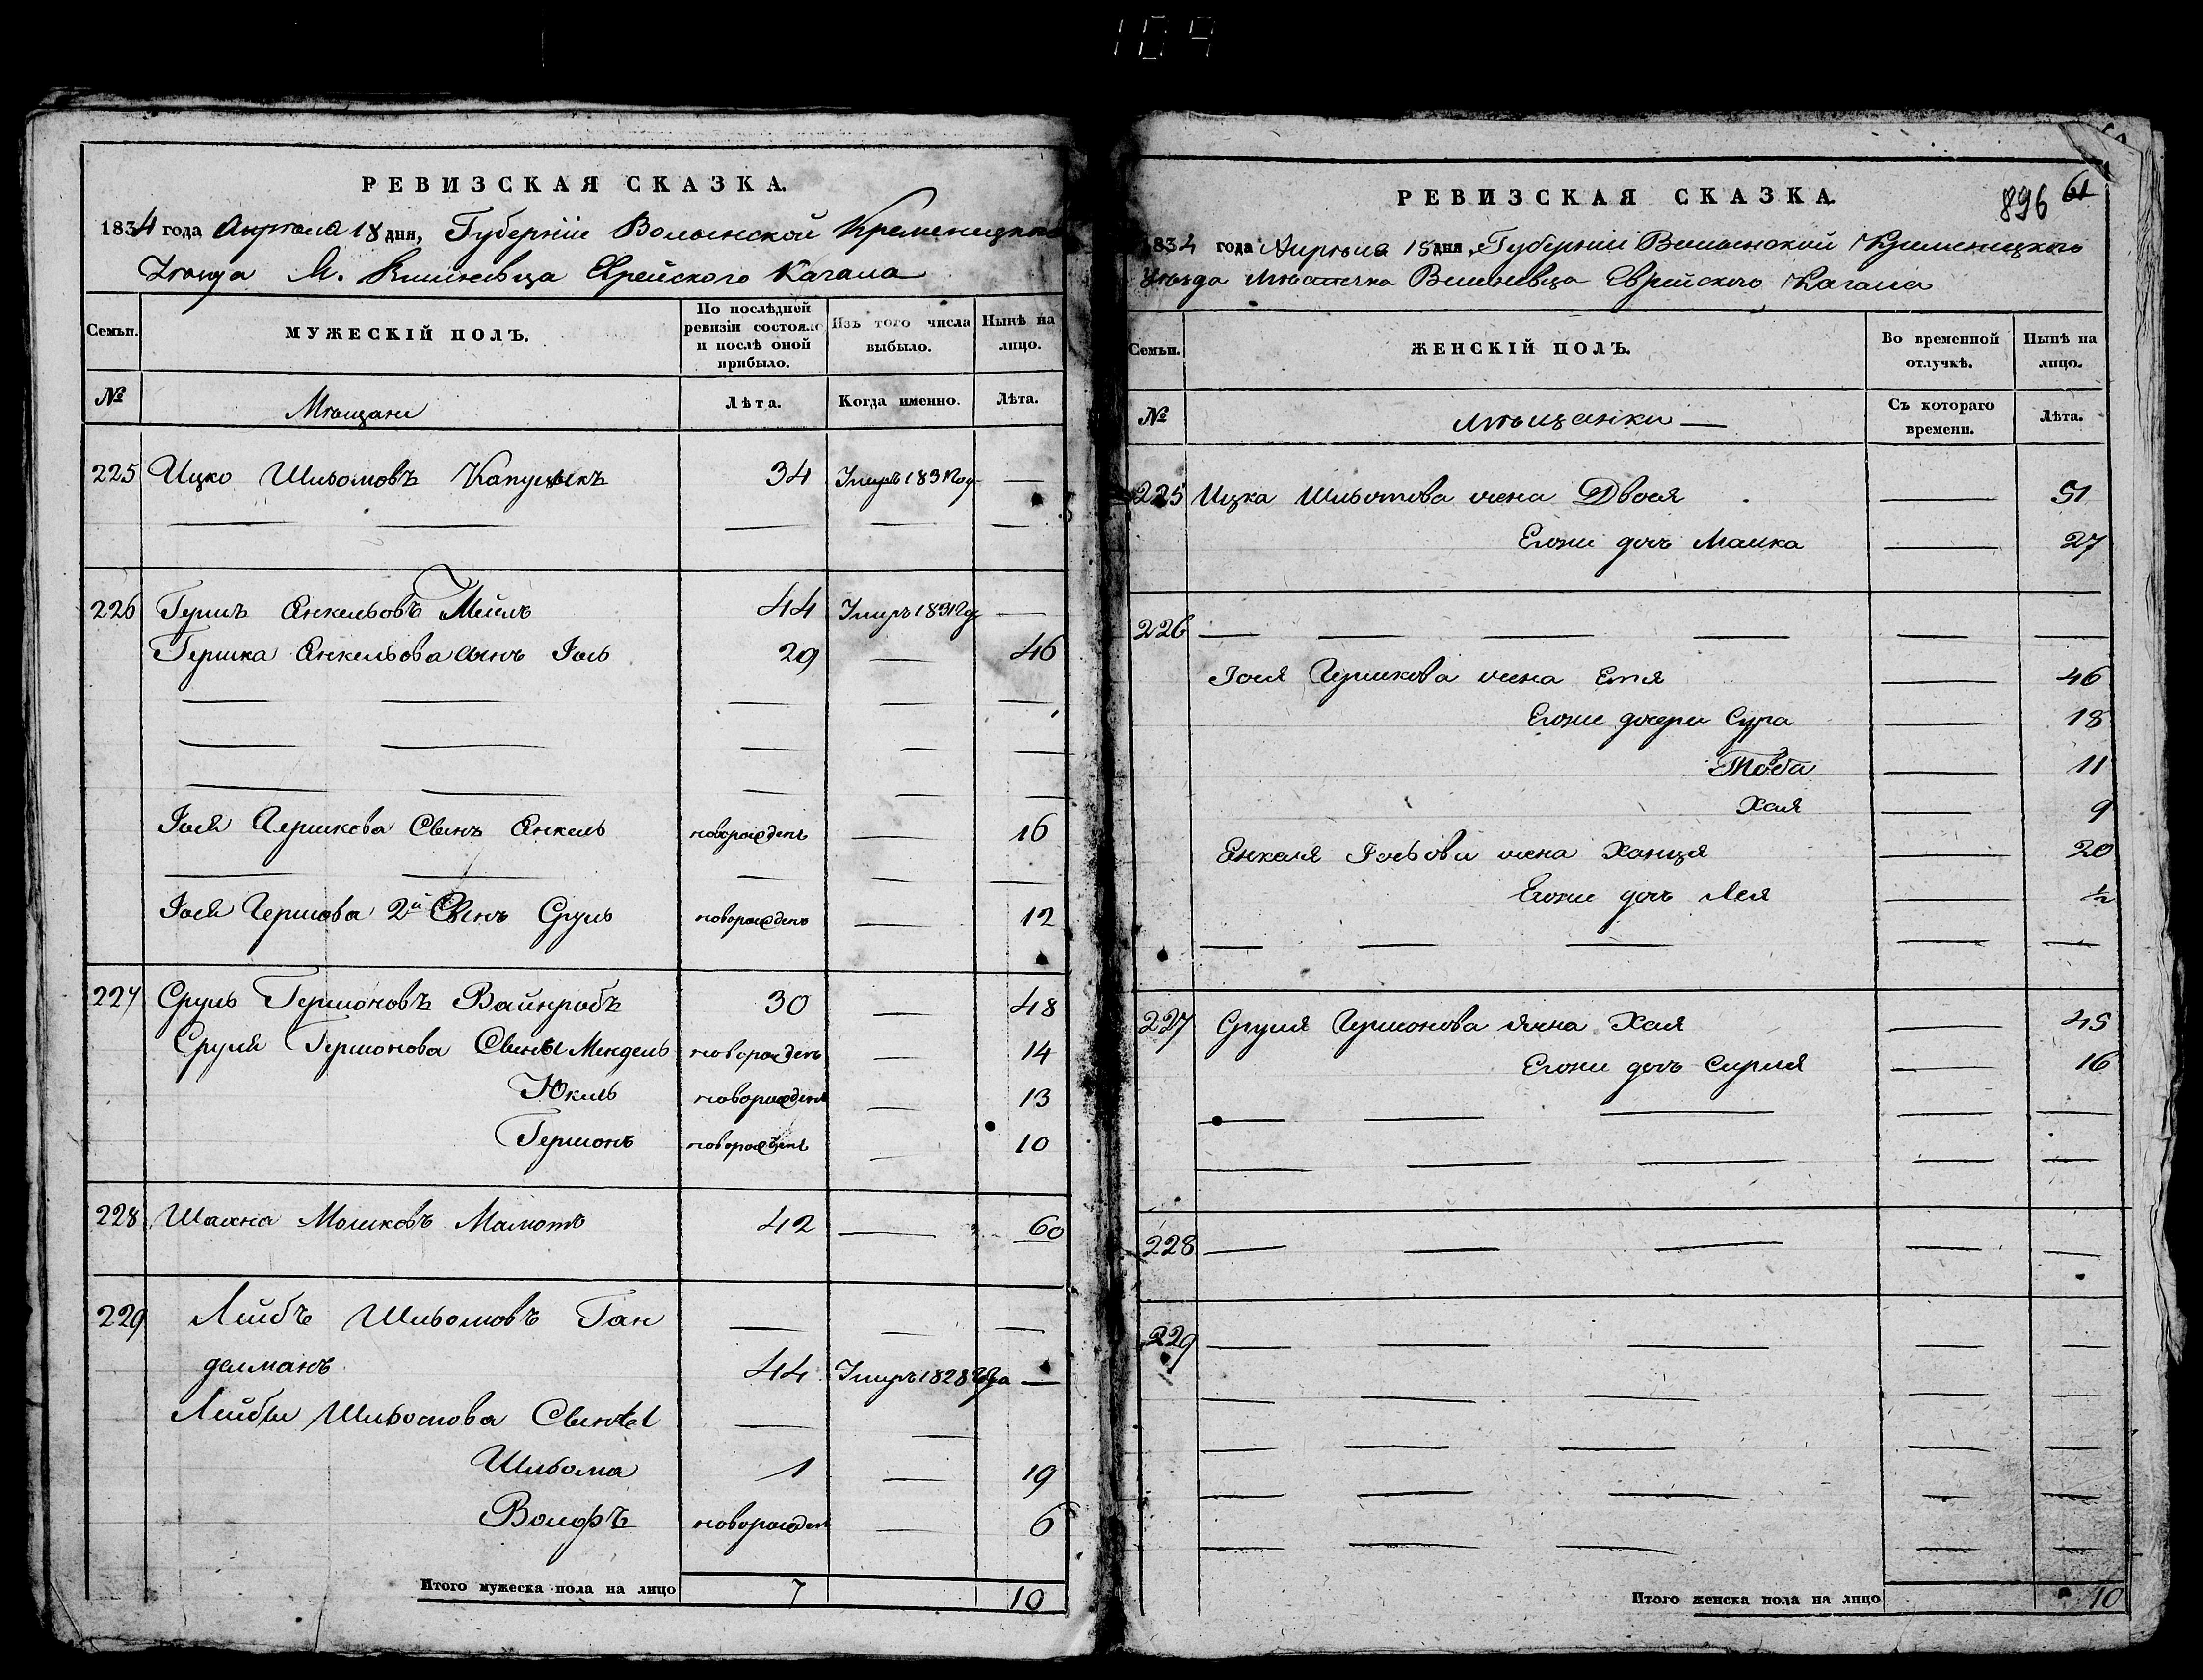 109
РЕВИЗСКАЯ СКАЗКА.
1834 года Апреля 18 дня, Губерніи Волынской Кременецкаго
Уѣзда М. Вишневца Еврейского Кагала
Семьи. МУЖЕСКІЙ ПОЛЪ. По послѣдней ревизіи состояло и послѣ оной прибыло. Изъ того числа выбыло. Нынѣ на лицо.
№ Мѣщане Лѣта. Когда именно. Лѣта.
225 Ицко Шльомовъ 34 Умеръ 1831 год —
226 Гершъ Янкельовъ 44 Умеръ 1831 го —
Гершка Янкельова сынъ Іось 29 — 46
Іося Гершкова Сынъ Янкель новорожденъ — 16
Іося Гершова 2й Сынъ Сруль новорожденъ — 12
227 Сруль Гершоновъ Вайнробъ 30 — 48
Сруля Гершонова Сыны Мендель новорожденъ — 14
Юкель новорожденъ — 13
Гершонъ новорожденъ — 10
228 Шахна Мошковъ 42 — 60
229 Лейбъ Шльомовъ Ган — — —
делманъ 44 Умеръ 1828 года —
Лейбы Шльомова Сыны — —
Шльома 1 — 19
Волфъ новорожден — 6
Итого мужеска пола на лицо 7 10
896 61
РЕВИЗСКАЯ СКАЗКА.
1834 года Апреля 18 дня, Губерніи Волынской Кременецкого
Уѣзда Мѣстечка Вишневца Еврейского Кагала
Семьи. ЖЕНСКІЙ ПОЛЪ. Во временной отлучкѣ. Нынѣ на лицо.
№ Мѣщанки — Съ котораго времени. Лѣта.
225 Ицка Шльомова жена Двося — 51
Егоже дочь Малка — 27
226 — — — — — —
Іося Гершкова жена Етя — 46
Егоже дочери Сура — 18
Тоба — 11
Хая — 9
Янкеля Іосьова жена Ханця — 20
Егоже дочь Лея — ½
227 Сруля Гершонова жена Хая — 45
Егоже дочь Сирля — 16
228 — — — — —
229 — — — — —
Итого женска пола на лицо 10